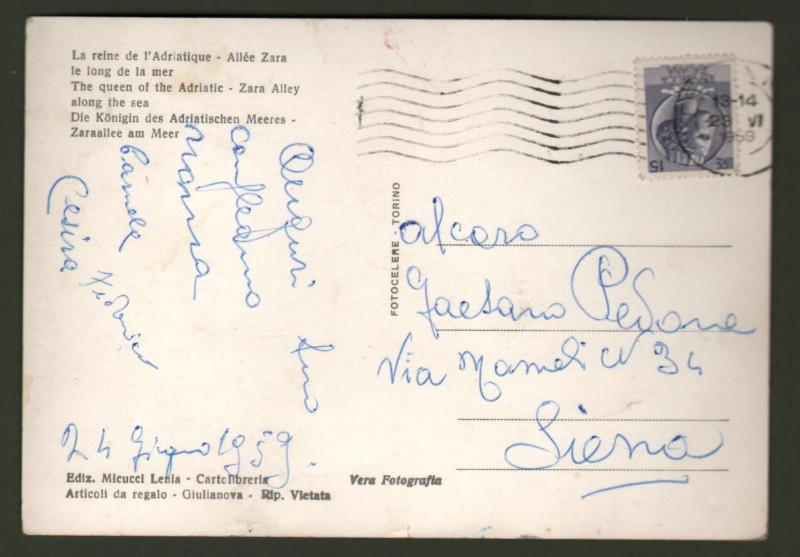 La reine de l'Adriatique - Allée Zara
le long de la mer
The queen of the Adriatic - Zara Alley
along the sea
Die Königin des Adriatischen Meeres -
Zaraallee am Meer
Auguri
compleanno
nonna
Cesira
24 Giugno 1959.
Ediz. Micucci Lenia - Cartolibreria
Articoli da regalo - Giulianova - Rip. Vietata
Vera Fotografia
FOTOCELERE - TORINO
13-14
23 VI
1959
15
al caro
Gaetano Pedone
Via Mameli N 34
Siena